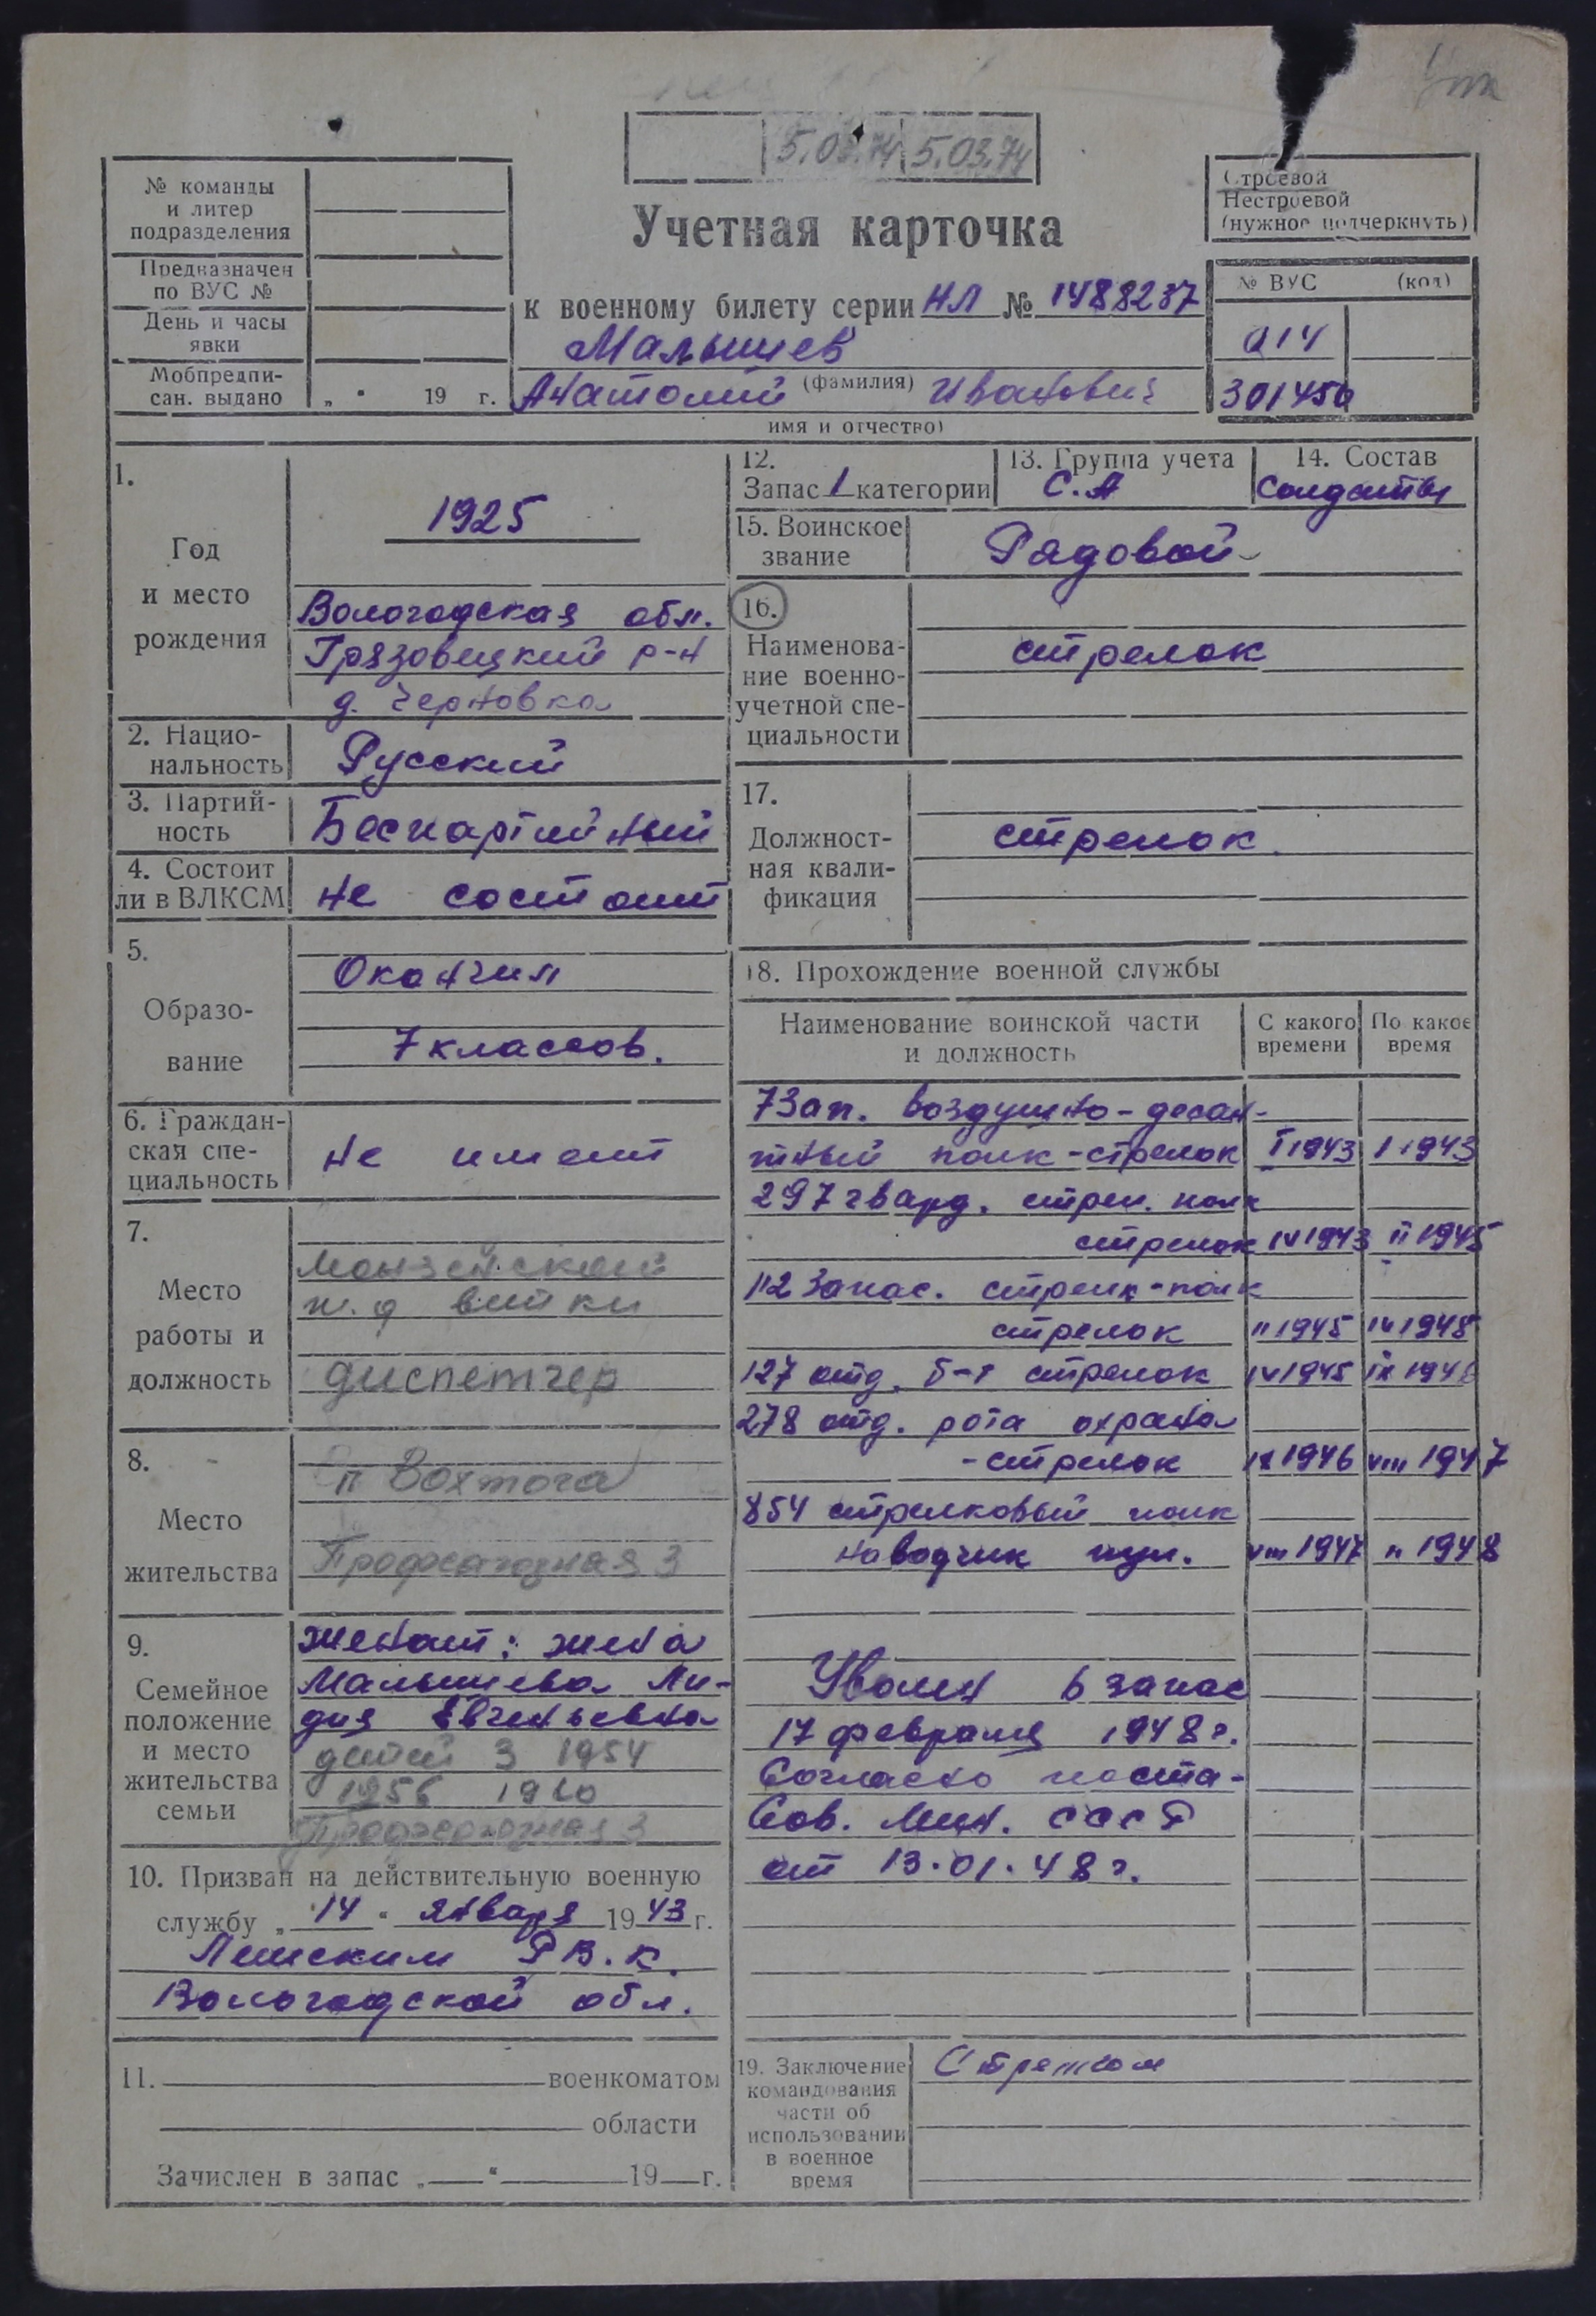 5.03.74 5.03.74
№ команды
и литер
подразделения
Предназначен
по ВУС №
День и часы
явки
Мобпредпи-
сан. выдано „ “ 19 г.
Учетная карточка
к военному билету серии НЛ № 1488237
Малышев
(фамилия)
Анатолий Иванович
имя и отчество)
Строевой
Нестроевой
(нужное подчеркнуть)
№ ВУС (код)
014
301450
1.
Год
и место
рождения
1925
Вологодская обл.
Грязовецкий р-н
д. Черновка
2. Нацио-
нальность
Русский
3. Партий-
ность
Беспартийный
4. Состоит
ли в ВЛКСМ
не состоит
5.
Образо-
вание
Окончил
7 классов.
6. Граждан-
ская спе-
циальность
не имеет
7.
Место
работы и
должность
Монзенской
ж.д ветки
диспетчер
8.
Место
жительства
п Вохтога
Профсоюзная 3
9.
Семейное
положение
и место
жительства
семьи
женат: жена
Малышева Ли-
дия Евгеньевна
детей 3 1954
1956 1960
Профсоюзная 3
10. Призван на действительную военную
службу „14“ января 1943 г.
Лежским Р.В.К.
Вологодской обл.
11. военкоматом
области
Зачислен в запас „ “ 19 г.
12.
Запас 1 категории
13. Группа учета
С.А
14. Состав
Солдаты
15. Воинское
звание
Рядовой
16.
Наименова-
ние военно-
учетной спе-
циальности
стрелок
17.
Должност-
ная квали-
фикация
стрелок.
18. Прохождение военной службы
Наименование воинской части
и должность
С какого
времени
По какое
время
7 Зап. воздушно-десан-
тный полк-стрелок I 1943 I 1943
297 гвард. стрел. полк
стрелок IV 1943 II 1945
112 Запас. стрелк-полк
стрелок II 1945 IV 1945
127 отд. б-т стрелок IV 1945 IX 1946
278 отд. рота охрана
-стрелок IX 1946 VIII 1947
854 стрелковый полк
наводчик пул. VIII 1947 II 1948
Уволен в запас
17 февраля 1948 г.
Согласно поста-
Сов. Мин. СССР
от 13.01.48 г.
19. Заключение
командования
части об
использовании
в военное
время
Стрелком